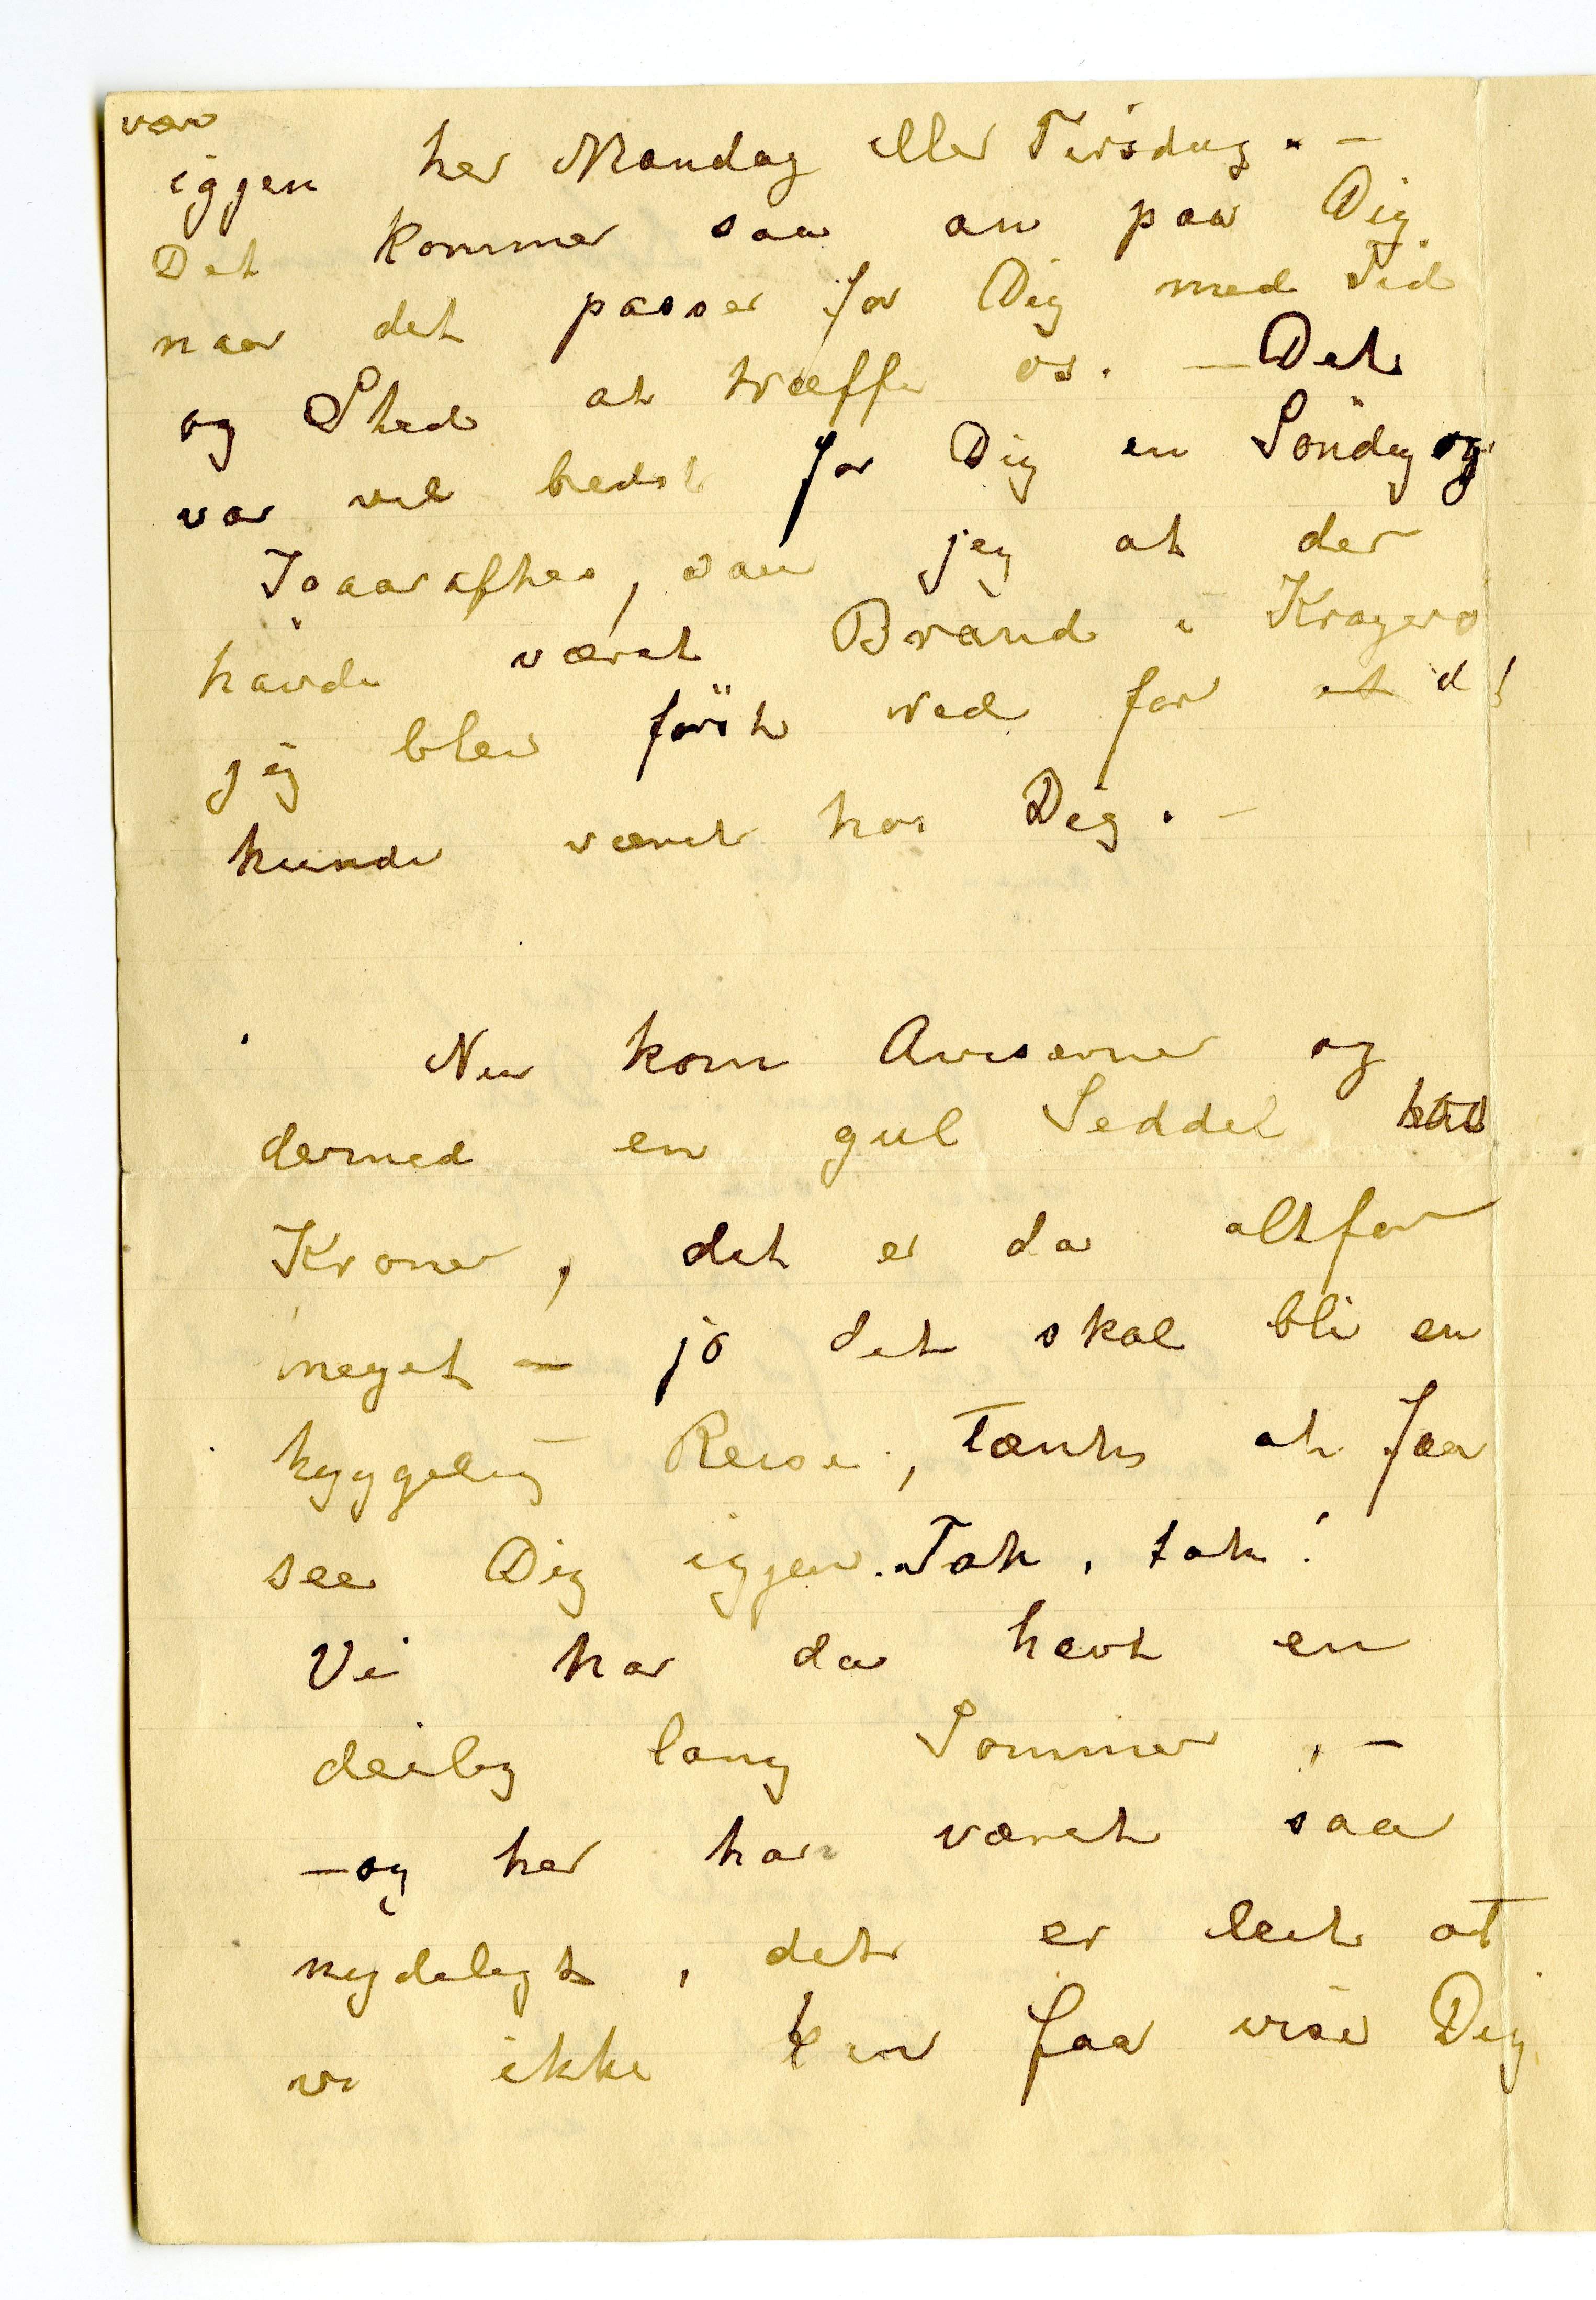 vær
igjen her Mandag eller Tirsdag. –
Det kommer saa an paa Dig
naar det passer for Dig med Tid
og Sted at træffe os. – Det
var vel bedst for Dig en Söndag og
Igaaraftes, saa jeg at der
havde været Brand i Kragerø
jeg blev först ræd for at d!
kunde været hos Dig. –
Nu kom Aviserne og
dermed en gul Seddel
Kroner, det er da altfor
meget – jo det skal bli en
hyggelig Reise, tænk at faa
see Dig igjen. Tak, tak!
Vi har da havt en
deilig lang Sommer, –
– og her har været saa
nydeligt, det er leit at
vi ikke kan faa vise Dig